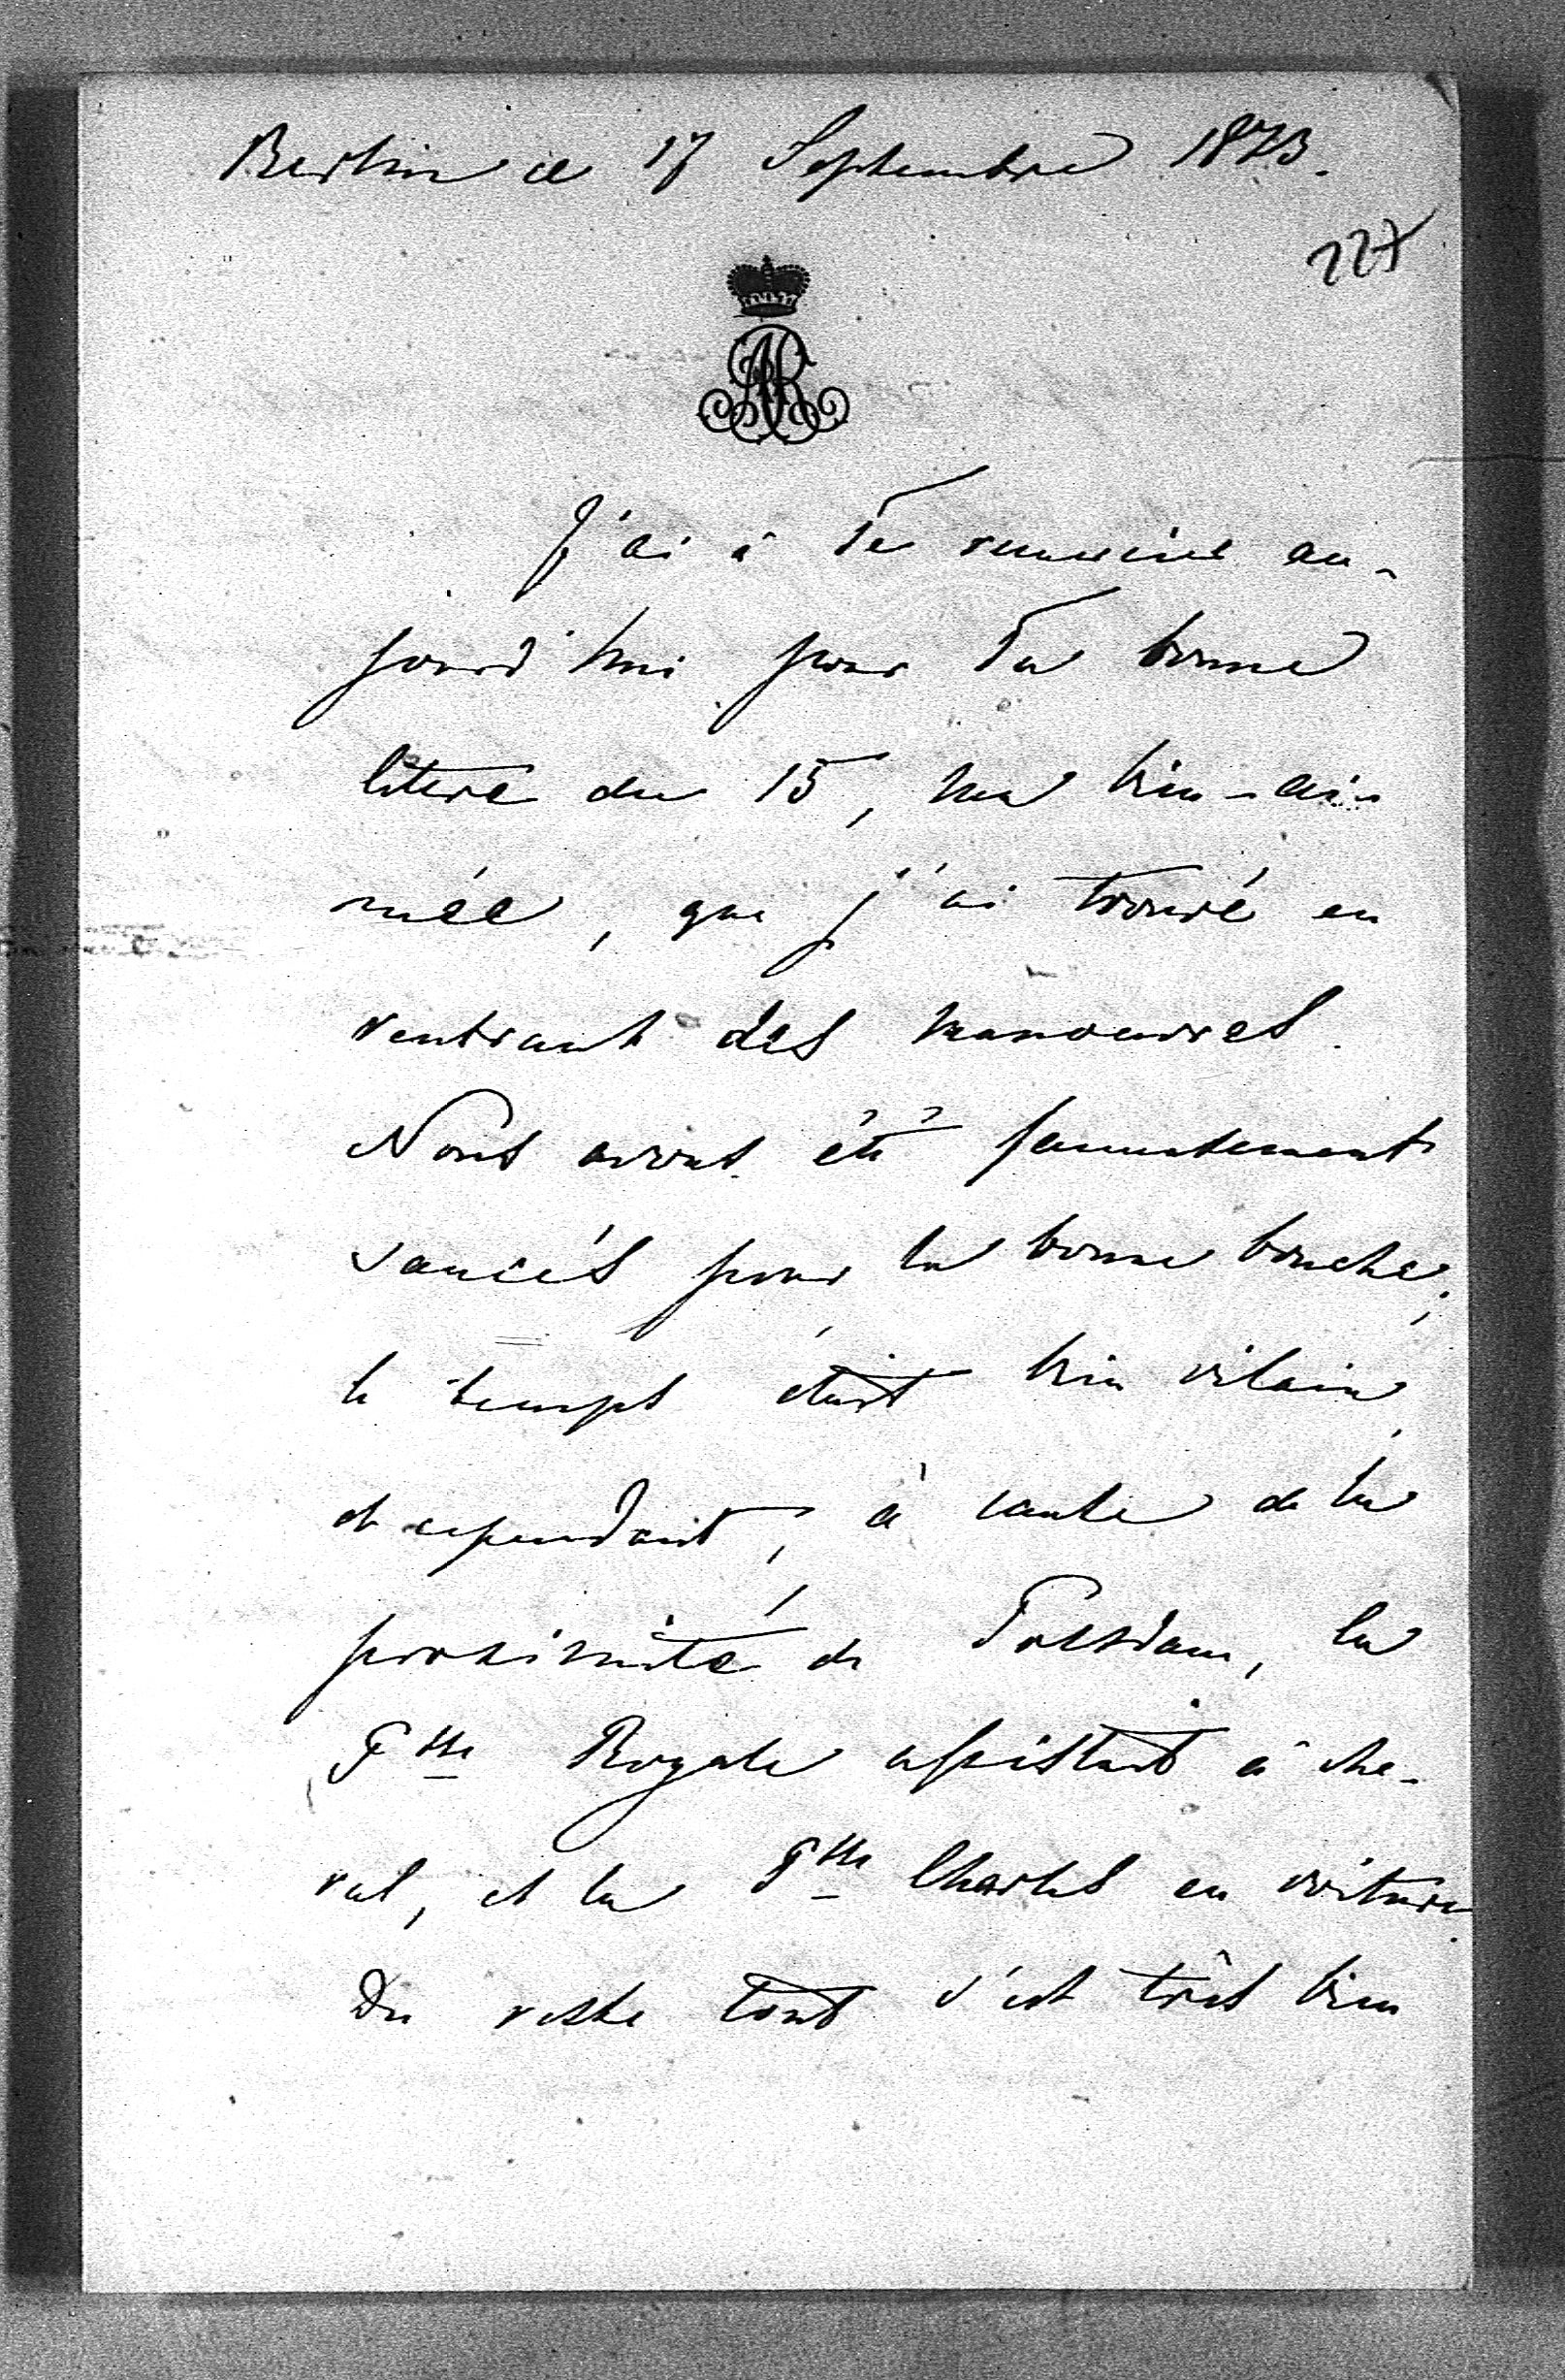 Berlin ce 17 Septembre 1873.
227
J'ai à Te remercier au-
jourd'hui pour Ta bonne
lettre du 15, ma bien-ai-
mée, que j'ai trouvé en
rentrant des manoeuvres.
Nous avons été
saucés pour la bonne bouche;
le temps était bien vilain,
et cependant, à cause de la
proximité de Potsdam, la
Psse Royale assistait à che-
val, et la Psse Charles en voiture.
Du reste tout s'est très bien